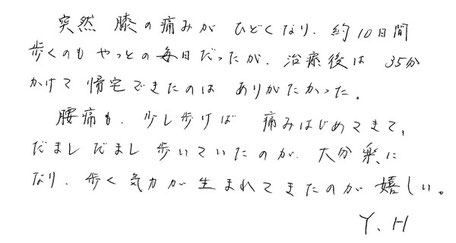 突然 膝の痛みが ひどくなり、約10日間
歩くのも やっとの毎日だったが、治療後は 35分
かけて 帰宅できたのは ありがたかった。
腰痛も、少し歩けば 痛みはじめてきて、
だましだまし歩いていたのが、大分楽に
なり、歩く気力が生まれてきたのが嬉しい。
Y.H